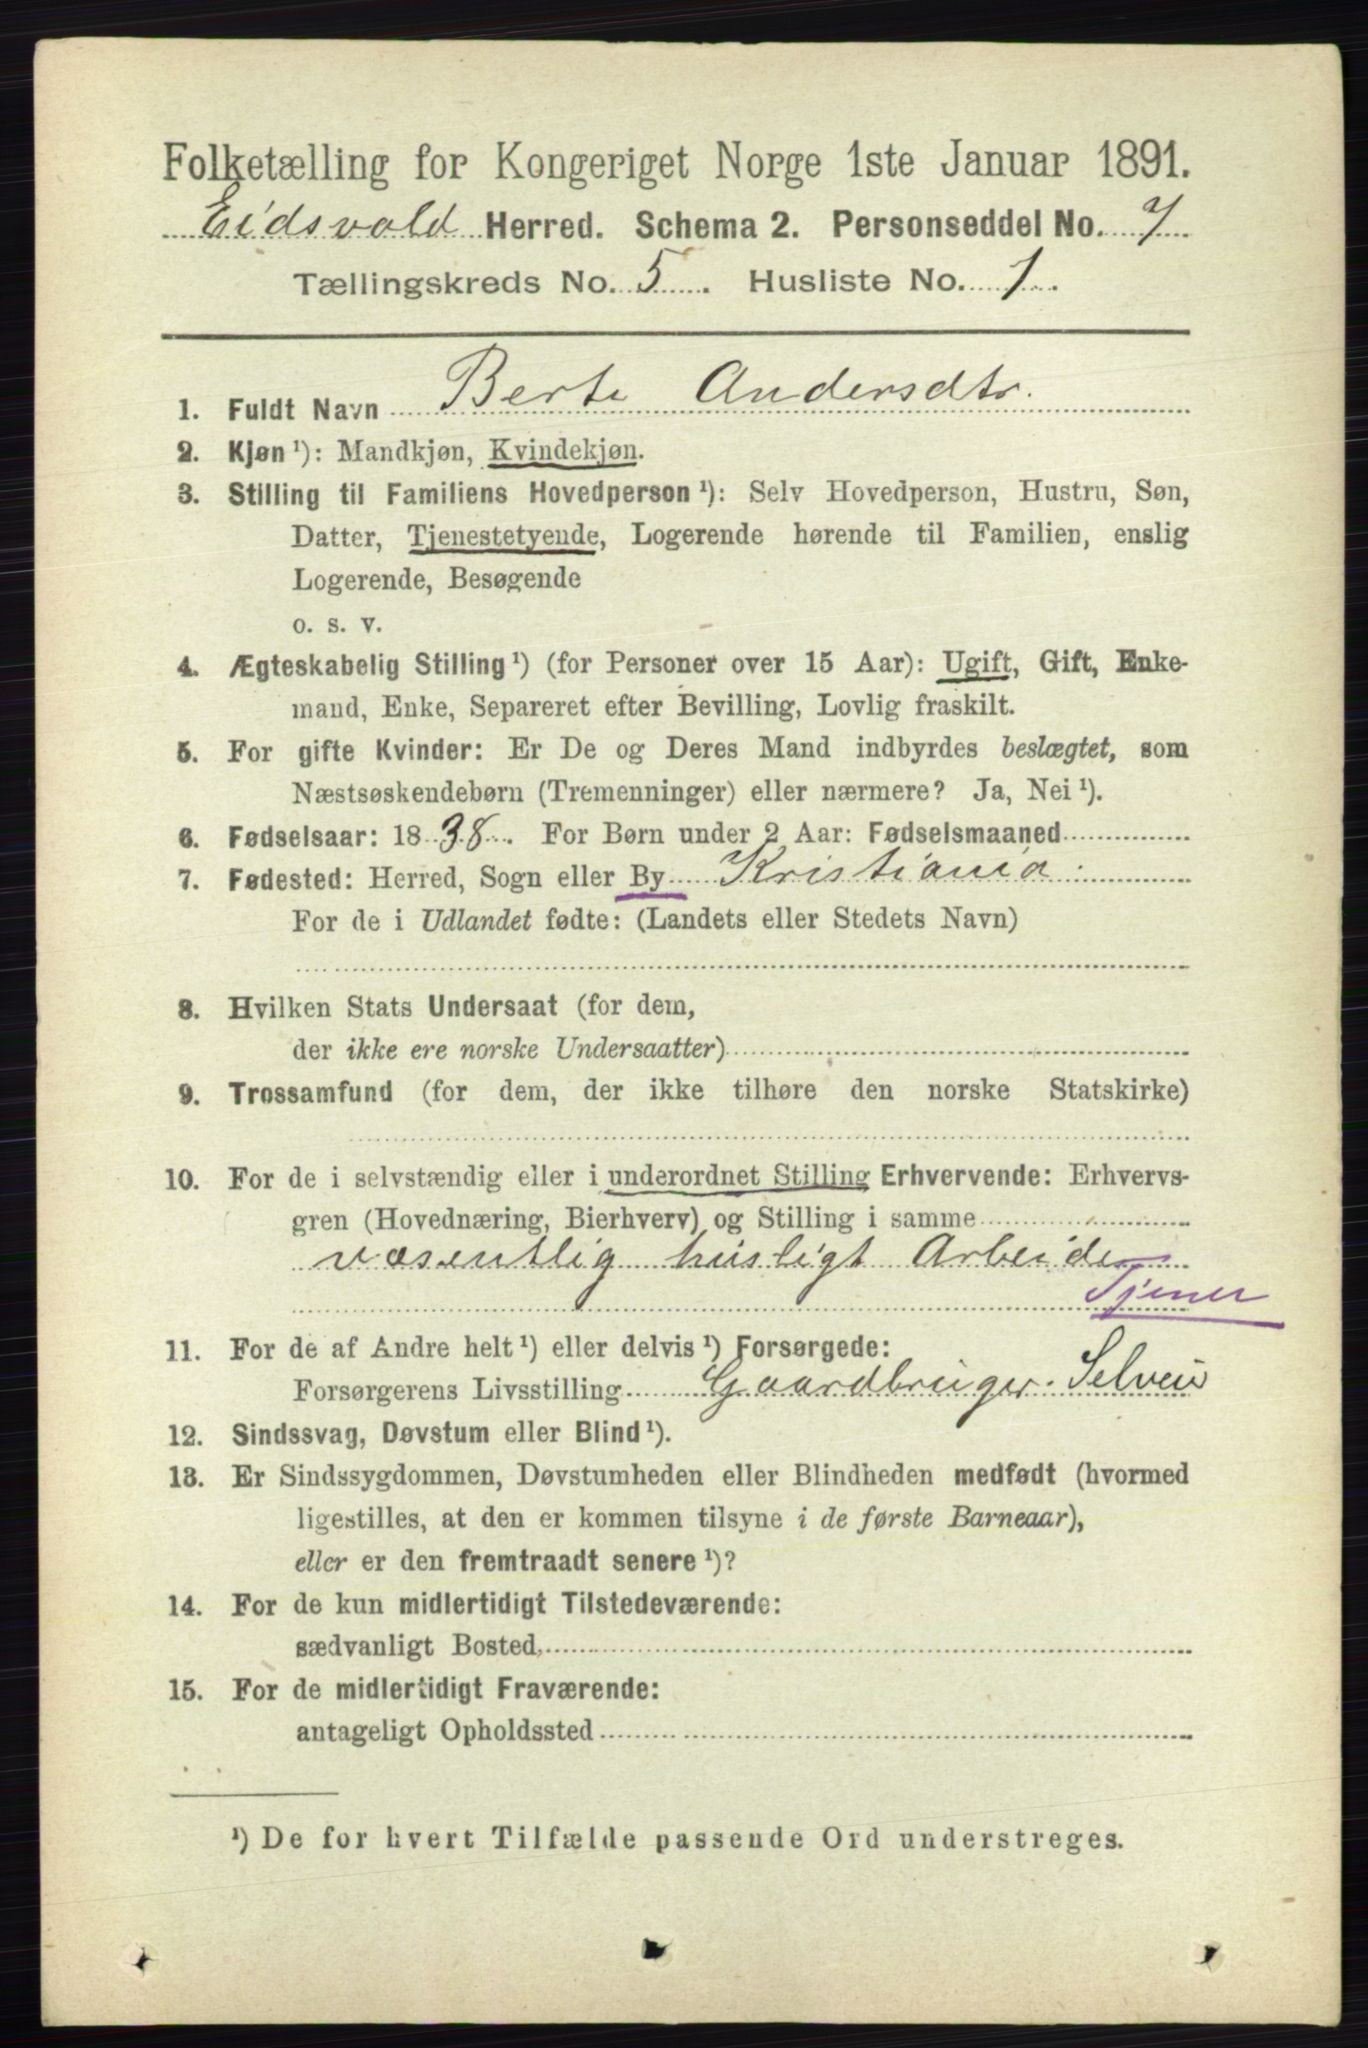 Folketælling for Kongeriget Norge 1ste Januar 1891.
Eidsvold Herred. Schema 2. Personseddel No. 7
Tællingskreds No. 5. Husliste No. 1.
1. Fuldt Navn Berte Andersdtr.
2. Kjøn ¹): Mandkjøn, Kvindekjøn.
3. Stilling til Familiens Hovedperson ¹): Selv Hovedperson, Hustru, Søn,
Datter, Tjenestetyende, Logerende hørende til Familien, enslig
Logerende, Besøgende
o. s. v.
4. Ægteskabelig Stilling ¹) (for Personer over 15 Aar): Ugift, Gift, Enke-
mand, Enke, Separeret efter Bevilling, Lovlig fraskilt.
5. For gifte Kvinder: Er De og Deres Mand indbyrdes beslægtet, som
Næstsøskendebørn (Tremenninger) eller nærmere? Ja, Nei ¹).
6. Fødselsaar: 1838. For Børn under 2 Aar: Fødselsmaaned
7. Fødested: Herred, Sogn eller By Kristiania.
For de i Udlandet fødte: (Landets eller Stedets Navn)
8. Hvilken Stats Undersaat (for dem,
der ikke ere norske Undersaatter)
9. Trossamfund (for dem, der ikke tilhøre den norske Statskirke)
10. For de i selvstændig eller i underordnet Stilling Erhvervende: Erhvervs-
gren (Hovednæring, Bierhverv) og Stilling i samme
væsentlig husligt Arbeide
Tjener
11. For de af Andre helt ¹) eller delvis ¹) Forsørgede:
Forsørgerens Livsstilling Gaardbruger. Selveier
12. Sindssvag, Døvstum eller Blind ¹).
13. Er Sindssygdommen, Døvstumheden eller Blindheden medfødt (hvormed
ligestilles, at den er kommen tilsyne i de første Barneaar),
eller er den fremtraadt senere ¹)?
14. For de kun midlertidigt Tilstedeværende:
sædvanligt Bosted,
15. For de midlertidigt Fraværende:
antageligt Opholdssted
¹) De for hvert Tilfælde passende Ord understreges.